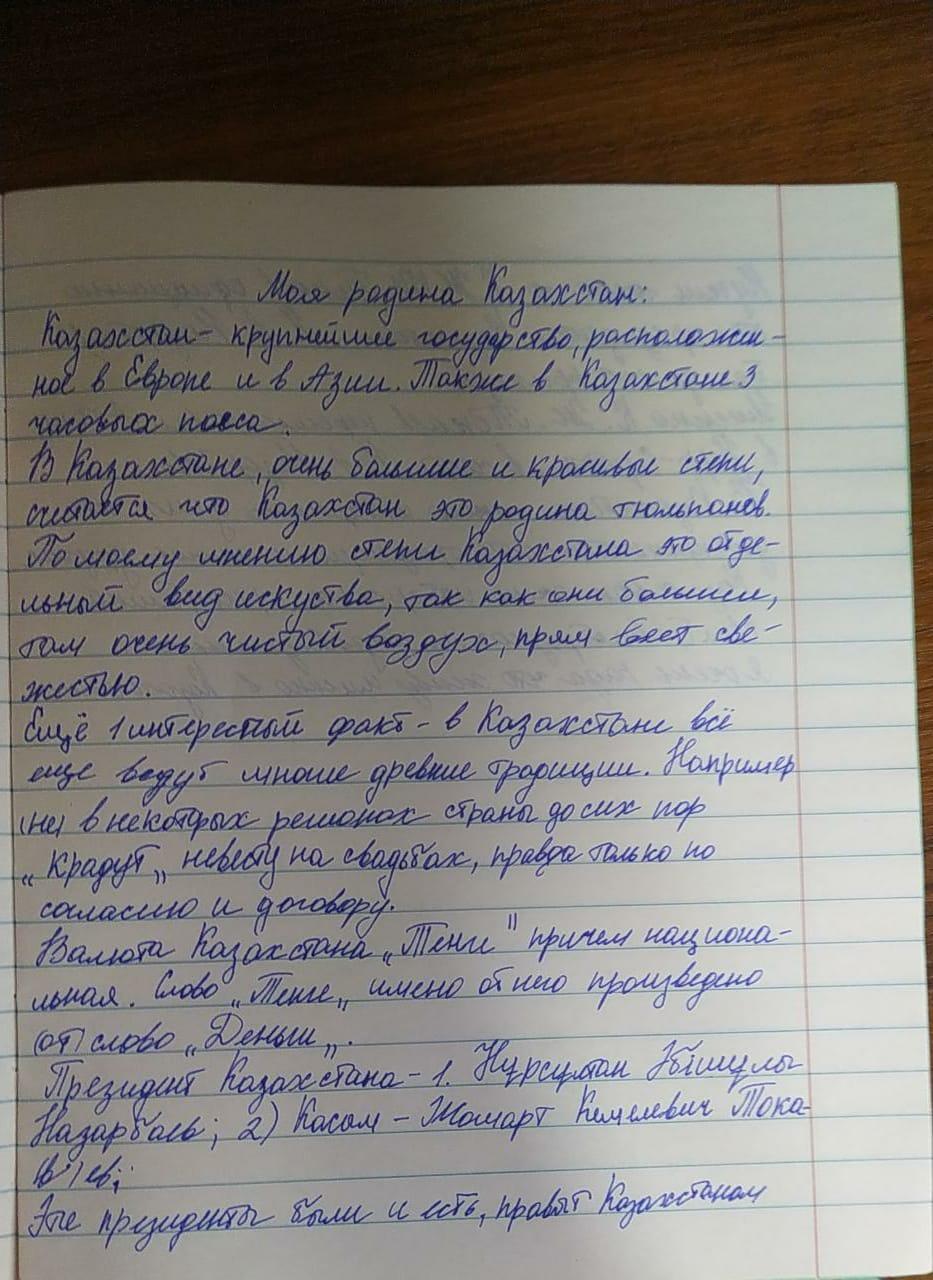 Моя родина Казахстан:
Казахстан- крупнейшее государство, расположен-
ное в Европе и в Азии. Также в Казахстане 3
часовых пояса.
В Казахстане, очень большие и красивые степи,
считается что Казахстан это родина тюльпанов.
По моему мнению степи Казахстана это отде-
льный вид искуства, так как они большие,
там очень чистый воздух, прям веет све-
жестью.
Ещё 1 интересный факт- в Казахстане всё
еще ведут многие древние традиции. Например
(не) в некоторых регионах страны до сих пор
„Крадут„ невесту на свадьбах, правда только по
согласию и договору.
Валюта Казахстана „Тенге" причем национа-
льная. Слово „Тенге„ имено от него произведено
(от) слово „Деньги„.
Президент Казахстана- 1. Нурсултан Әбішұлы
Назарбаев; 2) Касым-Жомарт Кемелевич Тока-
(в) ев;
Эти президенты были и есть, правят Казахстаном